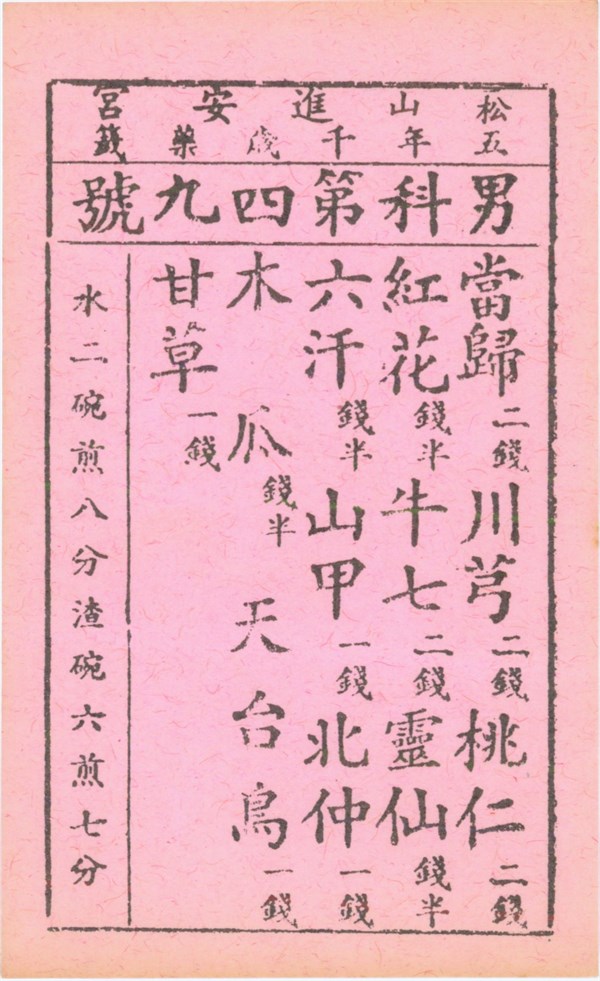 松山進安宮
五年千歲藥籤
男科第四九號
當歸二錢 川芎二錢 桃仁二錢
紅花錢半 牛七二錢 靈仙錢半
六汗錢半 山甲一錢 北仲一錢
木瓜錢半 天台烏一錢
甘草一錢
水二碗煎八分渣碗六煎七分